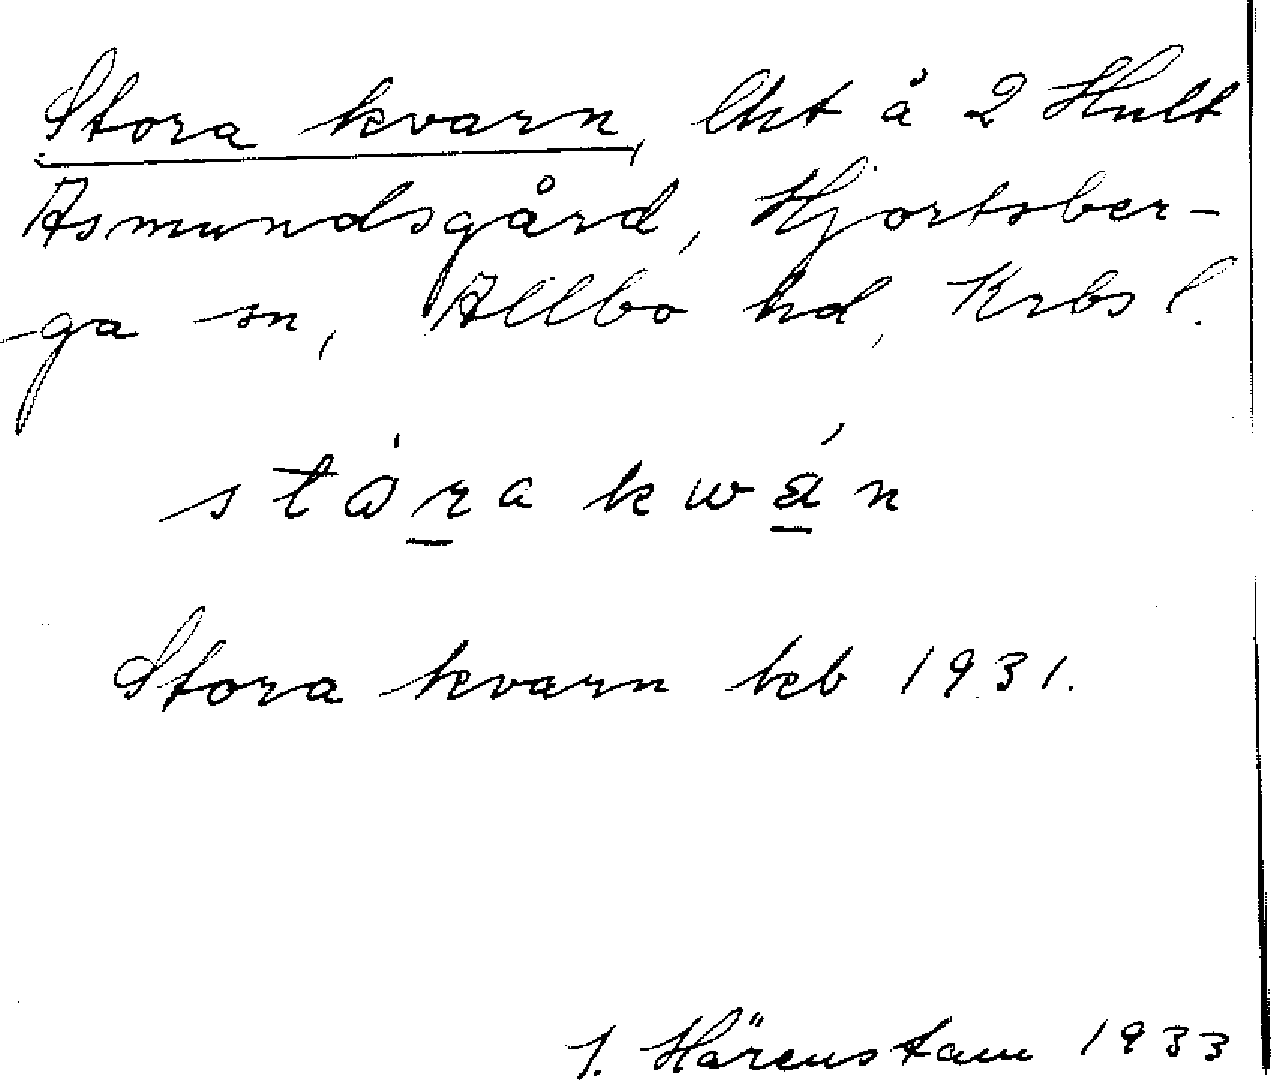 Stora kvarn, lht å 2 Hult
Asmundsgård, Hjortsber-
ga sn, Allbo hd, Krbs l.
stȯra kwán
Stora kvarn kb 1931.
J. Härenstam 1933